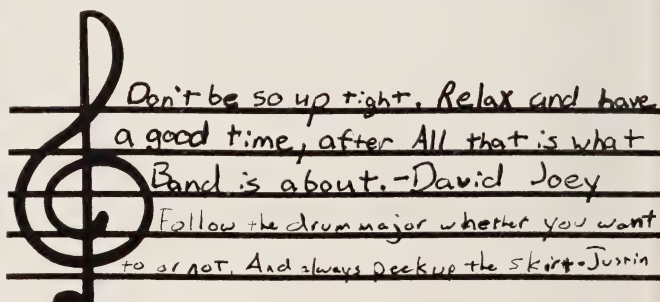 Don't be so up tight. Relax and have
a good time, after All that is what
Band is about. -David Joey
Follow the drum major whether you want
to or not. And always peek up the skirt. -Justin